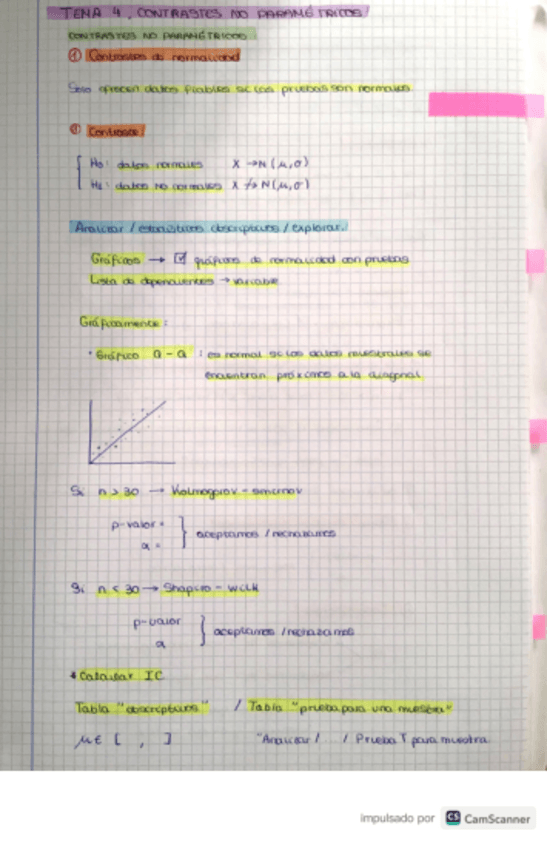 TEMA 4. CONTRASTES NO PARAMÉTRICOS
CONTRASTES NO PARAMÉTRICOS
① Contrastes de normalidad
Solo ofrecen datos fiables si las pruebas son normales
① Contraste:
H0: datos normales X → N(μ,σ)
H1: datos NO normales X ↛ N(μ,σ)
Analizar / estadísticos descriptivos / explorar.
Gráficos → ☑ gráficos de normalidad con pruebas
Lista de dependientes → variable
Gráficamente:
· Gráfico Q-Q : es normal si los datos muestrales se
encuentran próximos a la diagonal
Si n > 30 → Kolmogorov - Smirnov
p-valor =
α =
aceptamos / rechazamos
Si n < 30 → Shapiro - Wilk
p-valor
α
aceptamos / rechazamos
* Calcular IC
Tabla "descriptivos" / Tabla "prueba para una muestra"
μ ∈ [ , ] "Analizar / ... / Prueba T para muestra
impulsado por CS CamScanner